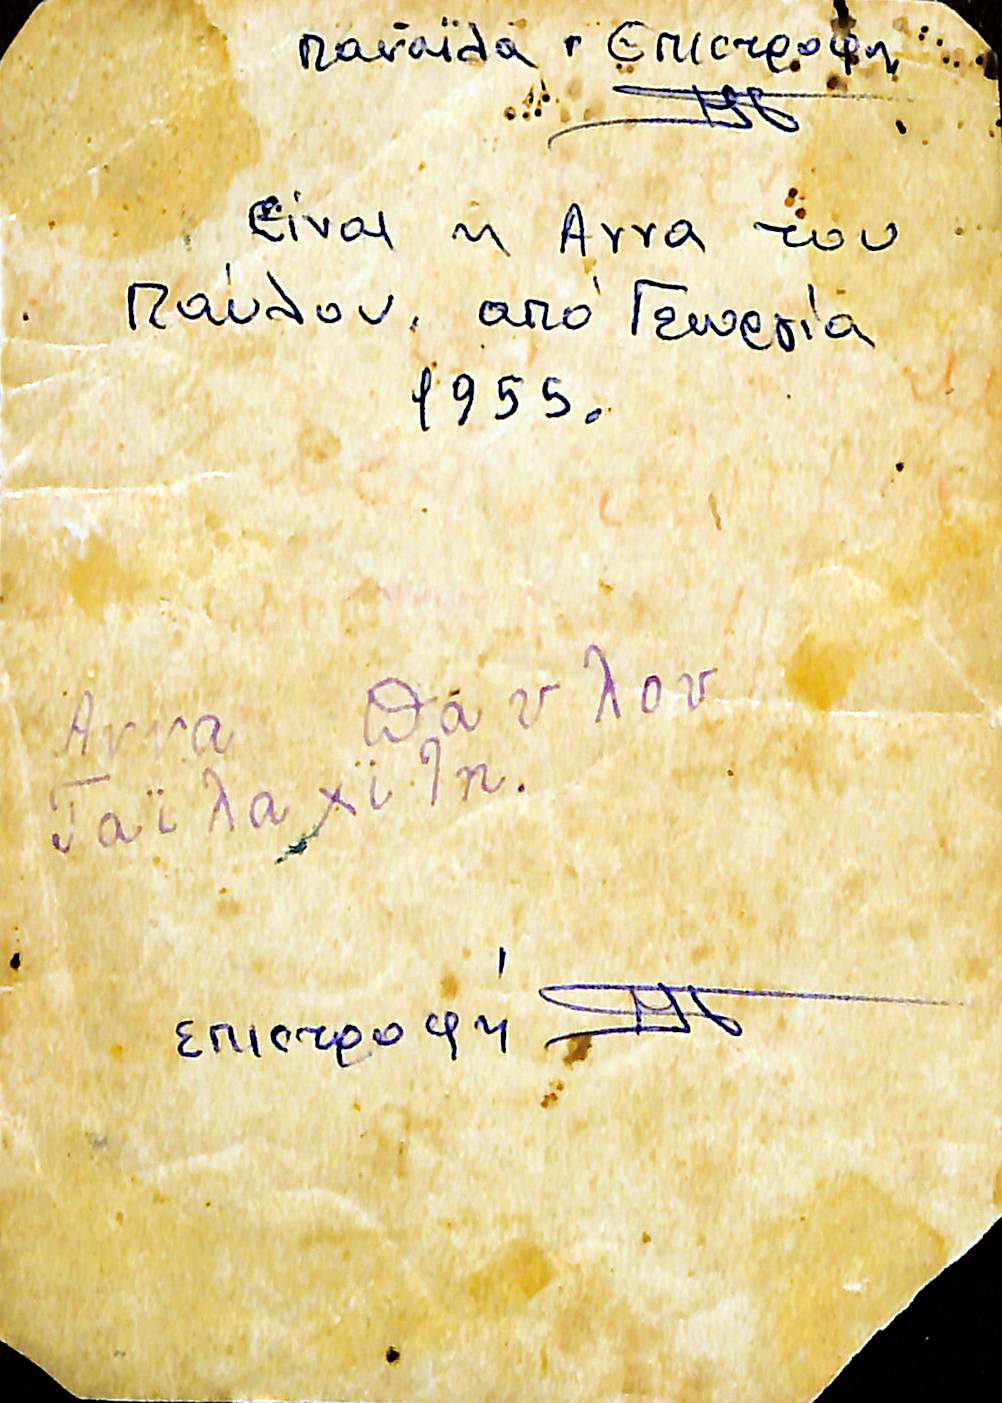 παναϊλα · Επιστροφη
Είναι η Αννα του
Παύλου. από Γεωργία
1955.
Αννα Παυλου
Ταϊλαχϊτη.
επιστροφή